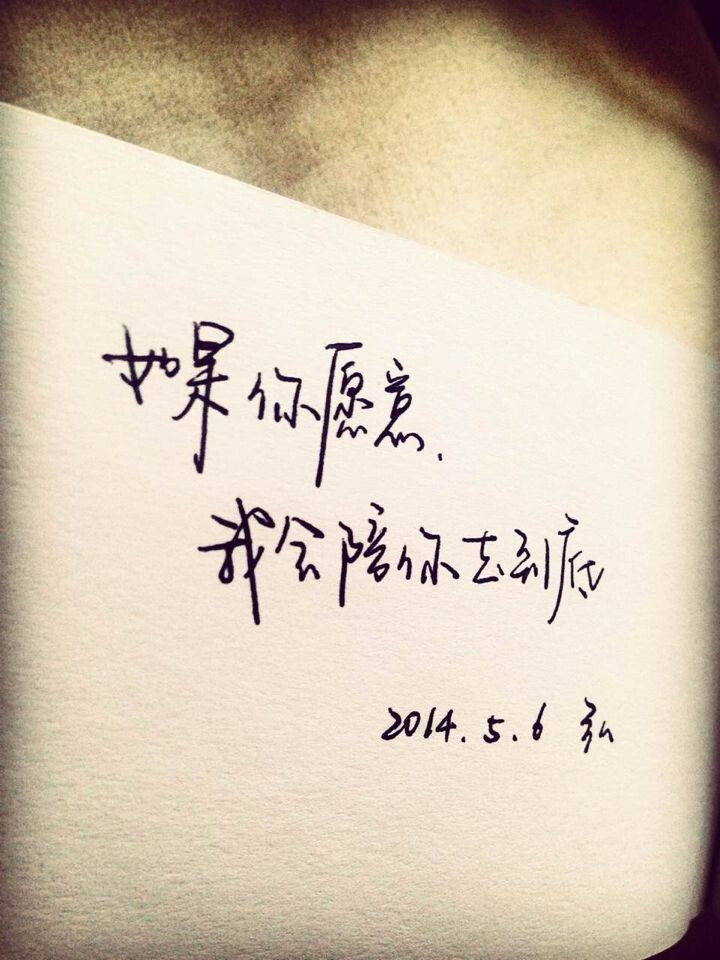 如果你愿意.
我会陪你去到底
2014.5.6 弘